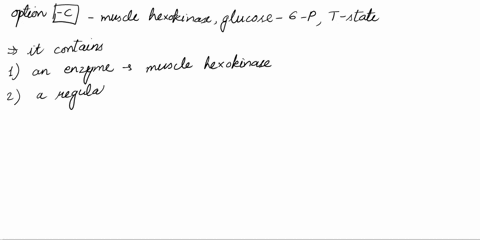 option [-C] - muscle hexokinase, glucose-6-P, T-state
⇒ it contains
1) an enzyme → muscle hexokinase
2) a regula